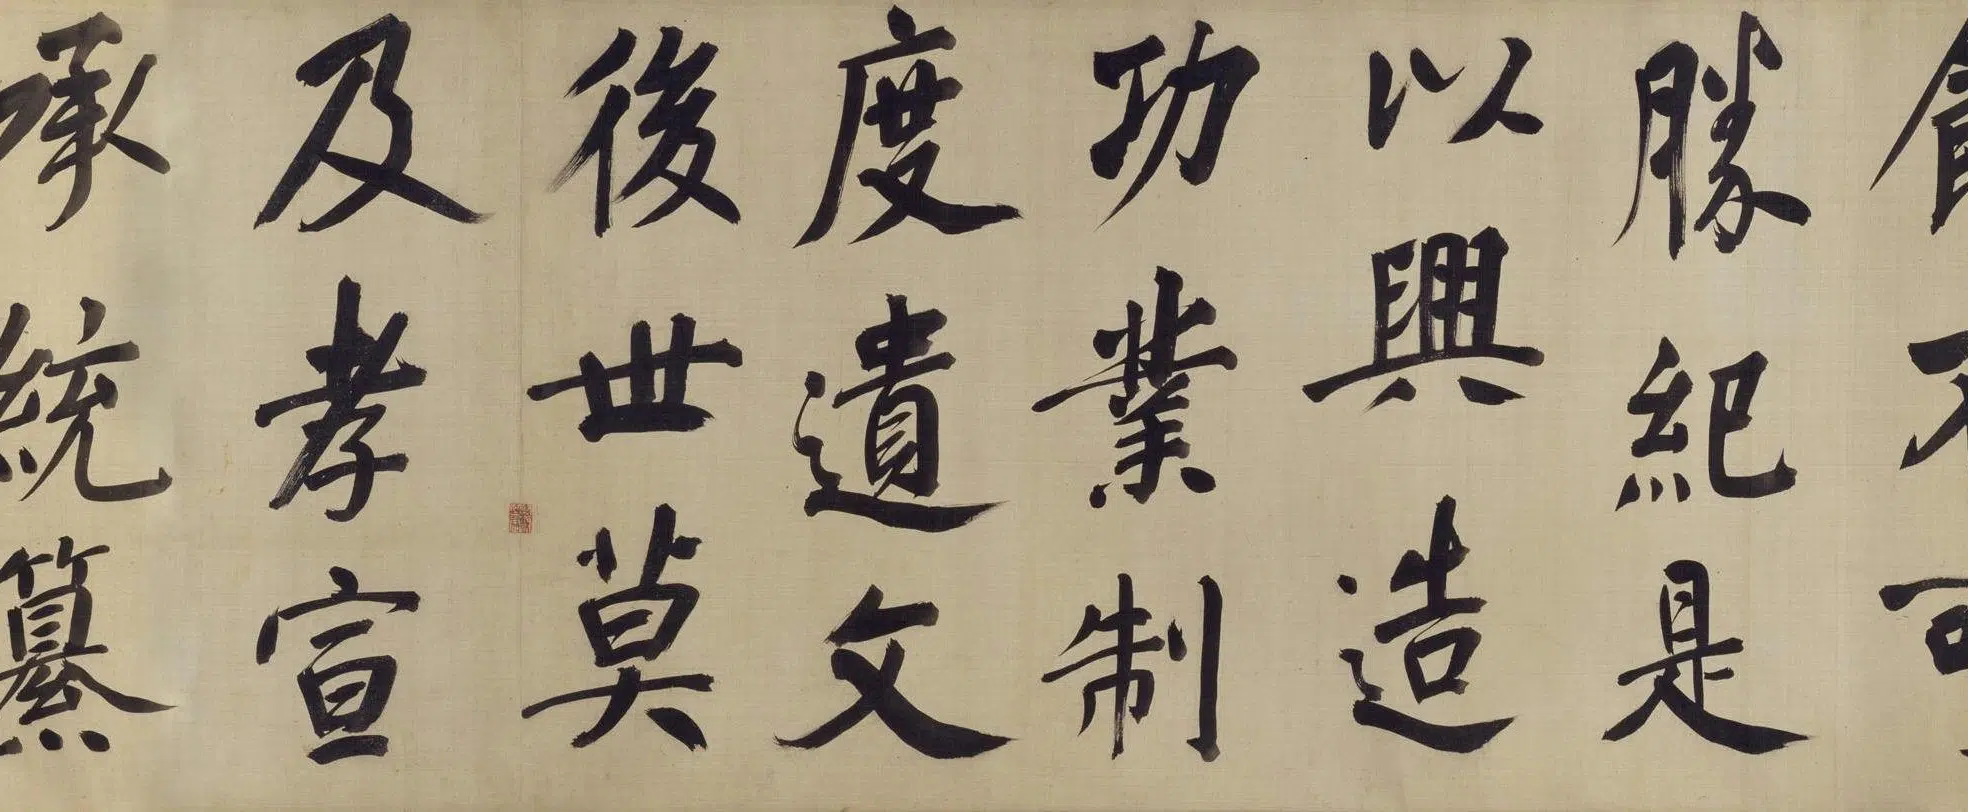 不可
勝紀是
以興造
功業制
度遺文
後世莫
及孝宣
承統纂